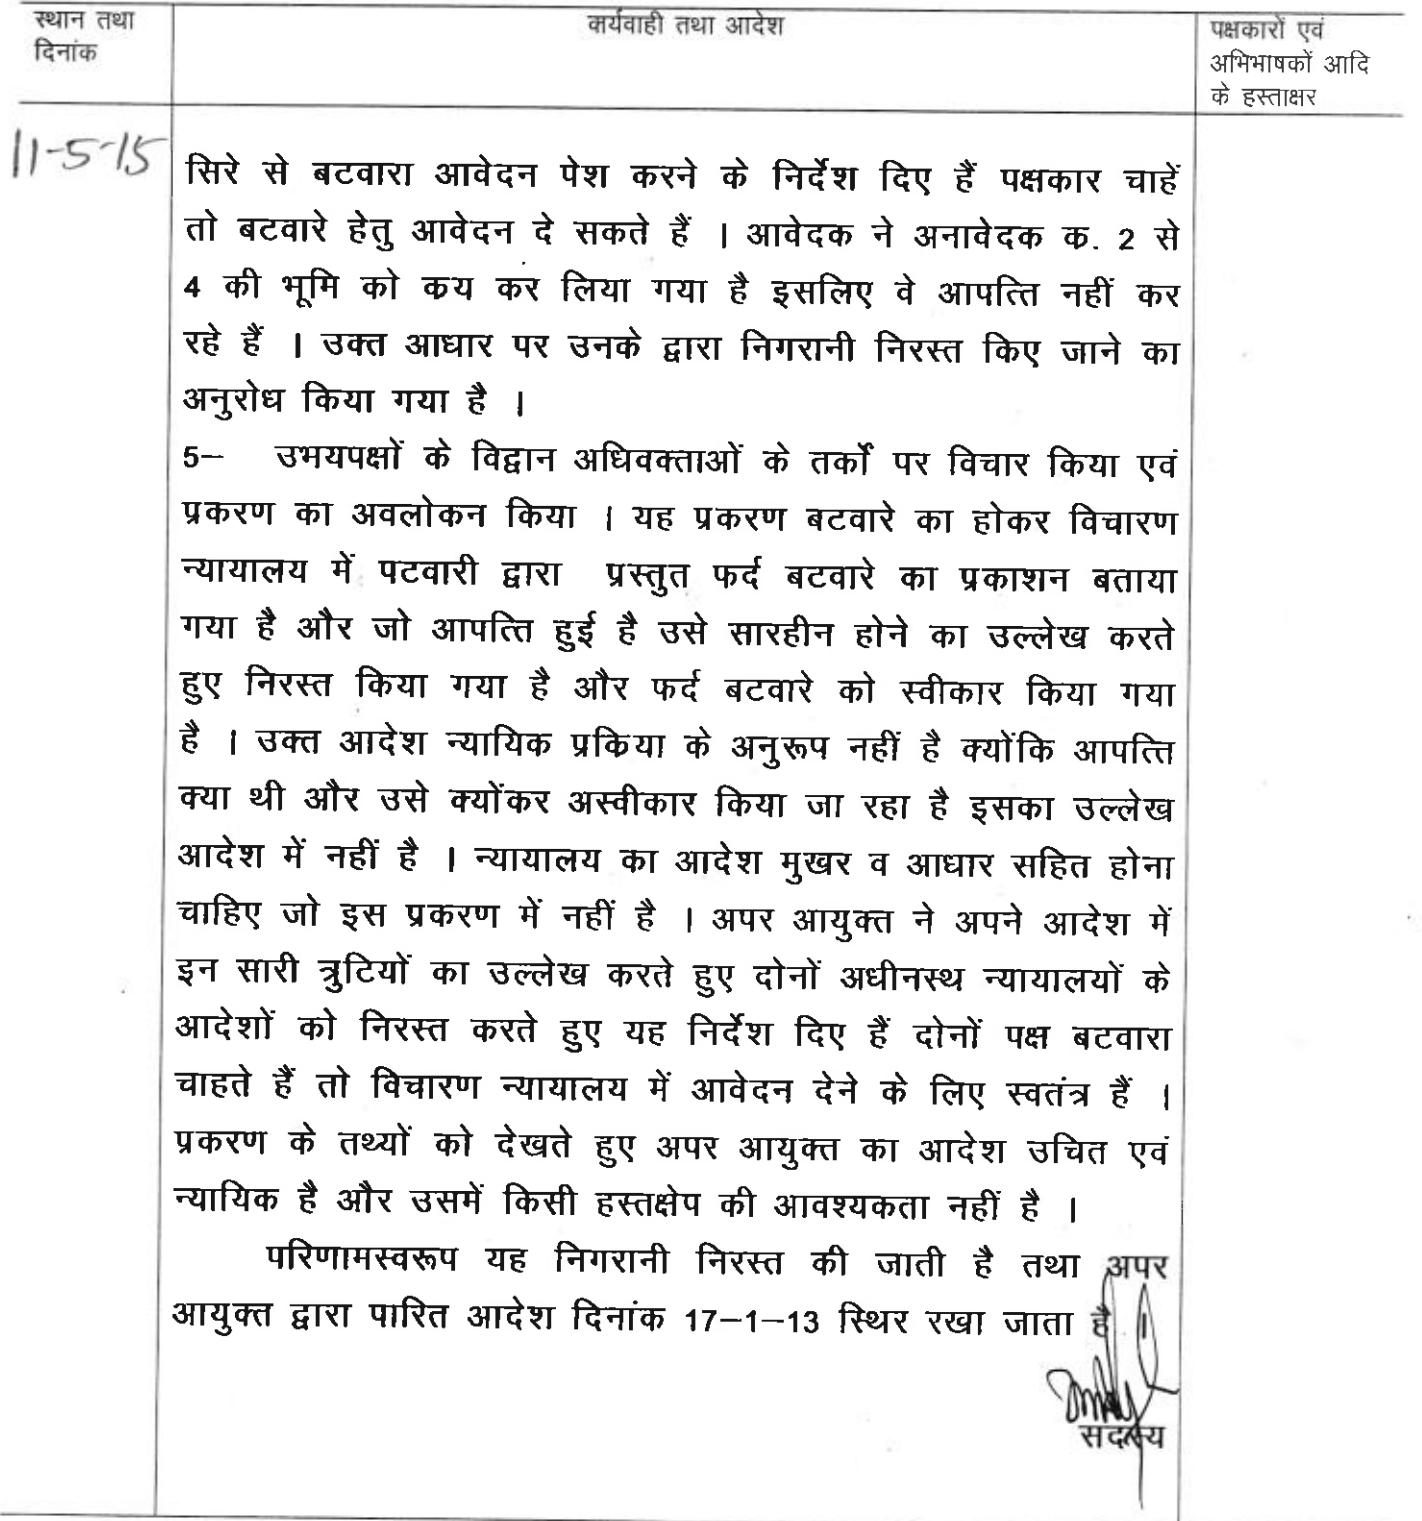 स्थान तथा
दिनांक
कार्यवाही तथा आदेश
पक्षकारों एवं
अभिभाषकों आदि
के हस्ताक्षर
11-5-15
सिरे से बटवारा आवेदन पेश करने के निर्देश दिए हैं पक्षकार चाहें
तो बटवारे हेतु आवेदन दे सकते हैं । आवेदक ने अनावेदक क. 2 से
4 की भूमि को कय कर लिया गया है इसलिए वे आपत्ति नहीं कर
रहे हैं । उक्त आधार पर उनके द्वारा निगरानी निरस्त किए जाने का
अनुरोध किया गया है ।
5– उभयपक्षों के विद्वान अधिवक्ताओं के तर्कों पर विचार किया एवं
प्रकरण का अवलोकन किया । यह प्रकरण बटवारे का होकर विचारण
न्यायालय में पटवारी द्वारा प्रस्तुत फर्द बटवारे का प्रकाशन बताया
गया है और जो आपत्ति हुई है उसे सारहीन होने का उल्लेख करते
हुए निरस्त किया गया है और फर्द बटवारे को स्वीकार किया गया
है । उक्त आदेश न्यायिक प्रकिया के अनुरूप नहीं है क्योंकि आपत्ति
क्या थी और उसे क्योंकर अस्वीकार किया जा रहा है इसका उल्लेख
आदेश में नहीं है । न्यायालय का आदेश मुखर व आधार सहित होना
चाहिए जो इस प्रकरण में नहीं है । अपर आयुक्त ने अपने आदेश में
इन सारी त्रुटियों का उल्लेख करते हुए दोनों अधीनस्थ न्यायालयों के
आदेशों को निरस्त करते हुए यह निर्देश दिए हैं दोनों पक्ष बटवारा
चाहते हैं तो विचारण न्यायालय में आवेदन देने के लिए स्वतंत्र हैं ।
प्रकरण के तथ्यों को देखते हुए अपर आयुक्त का आदेश उचित एवं
न्यायिक है और उसमें किसी हस्तक्षेप की आवश्यकता नहीं है ।
परिणामस्वरूप यह निगरानी निरस्त की जाती है तथा अपर
आयुक्त द्वारा पारित आदेश दिनांक 17–1–13 स्थिर रखा जाता है ।
सदस्य